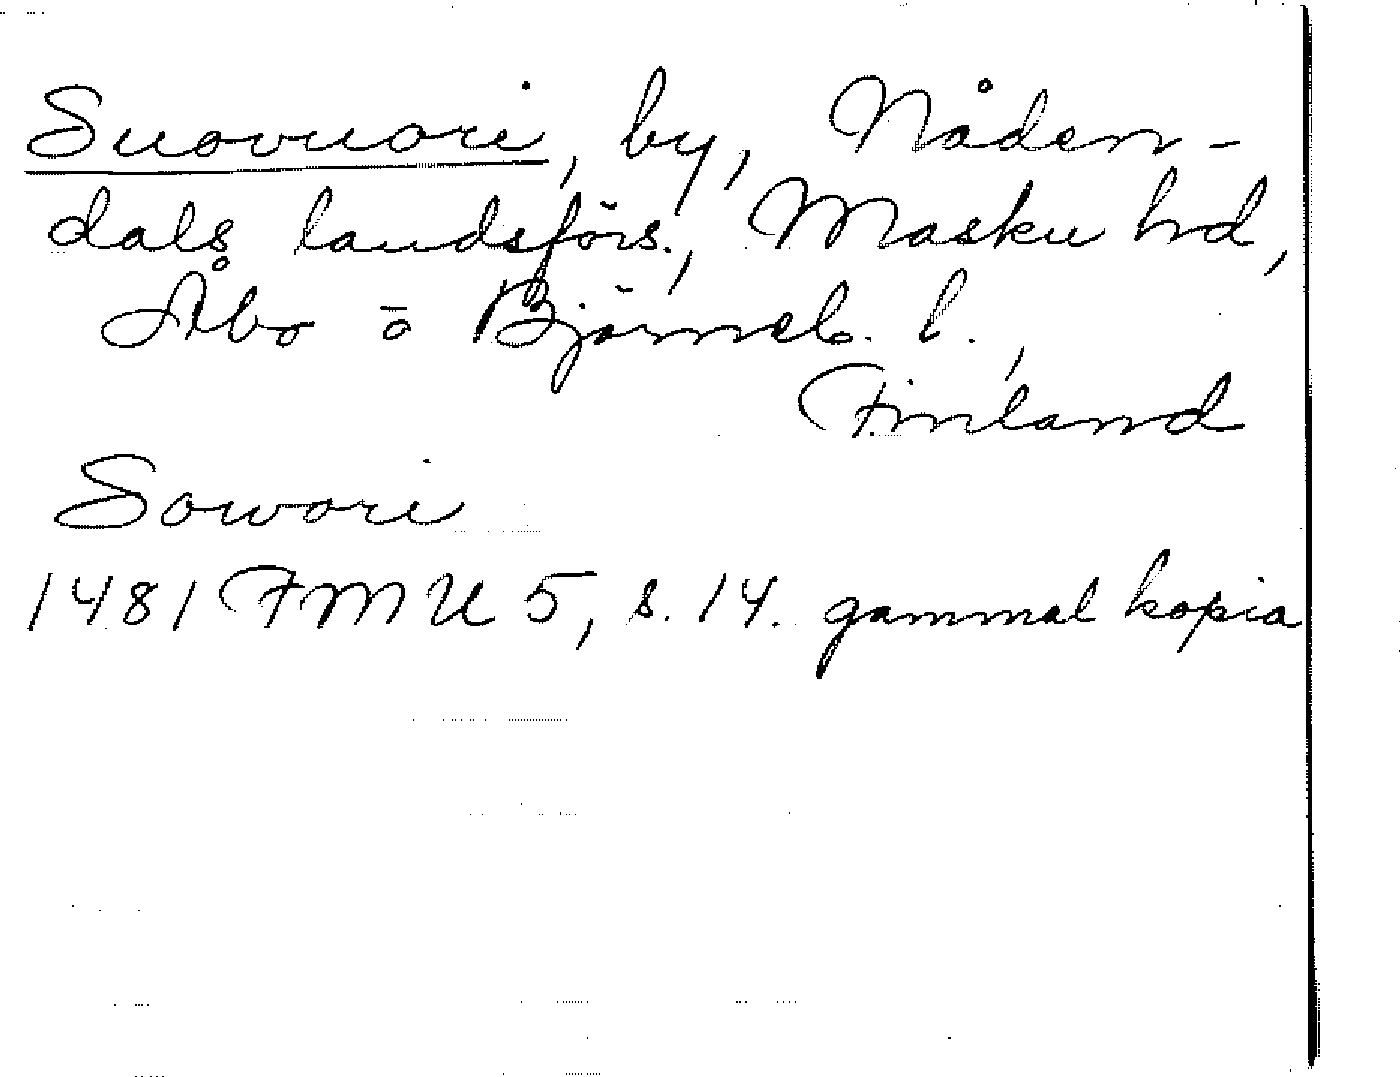 Suovuori, by, Nåden-
dals landsförs., Masku hd,
Åbo o Björneb. l.,
Finland
Sowori
1481 FMU 5, s. 14. gammal kopia